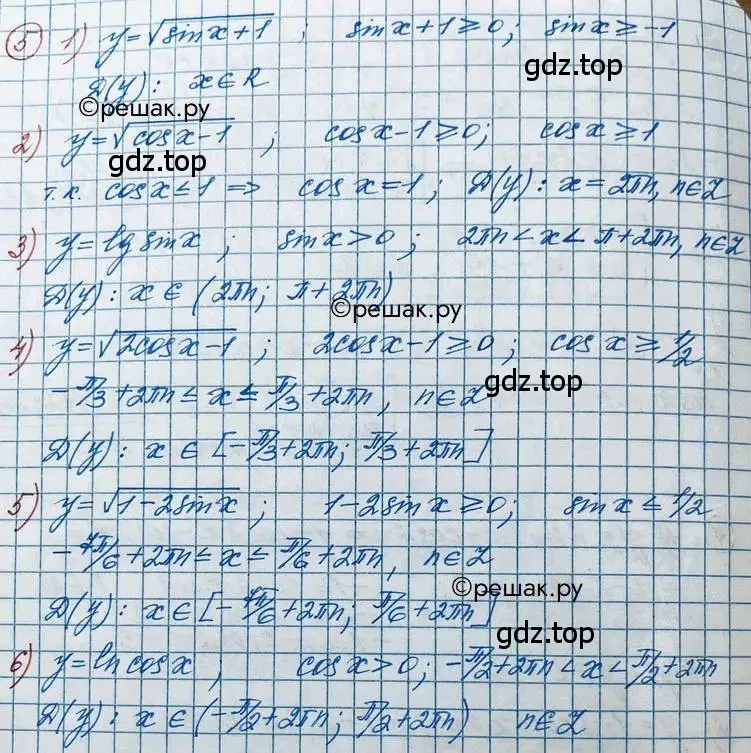 5 1) y=√(sinx+1) ; sinx+1≥0; sinx≥-1
D(y): x∈R
©решак.ру
gdz.top
2) y=√(cosx-1) ; cosx-1≥0; cosx≥1
gdz.top
т.к. cosx≤1 => cosx=1; D(y): x=2πn, n∈Z
3) y=lg sinx ; sinx>0 ; 2πn<x<π+2πn, n∈Z
D(y): x∈(2πn; π+2πn)
©решак.ру
4) y=√(2cosx-1) ; 2cosx-1≥0 ; cosx≥1/2
-π/3+2πn≤x≤π/3+2πn, n∈Z
gdz.top
D(y): x∈[-π/3+2πn; π/3+2πn]
5) y=√(1-2sinx) ; 1-2sinx≥0; sinx≤1/2
-7π/6+2πn≤x≤π/6+2πn, n∈Z
©решак.ру
D(y): x∈[-7π/6+2πn; π/6+2πn]
gdz.top
6) y=ln cosx ; cosx>0; -π/2+2πn<x<π/2+2πn
D(y): x∈(-π/2+2πn; π/2+2πn) n∈Z
gdz.top